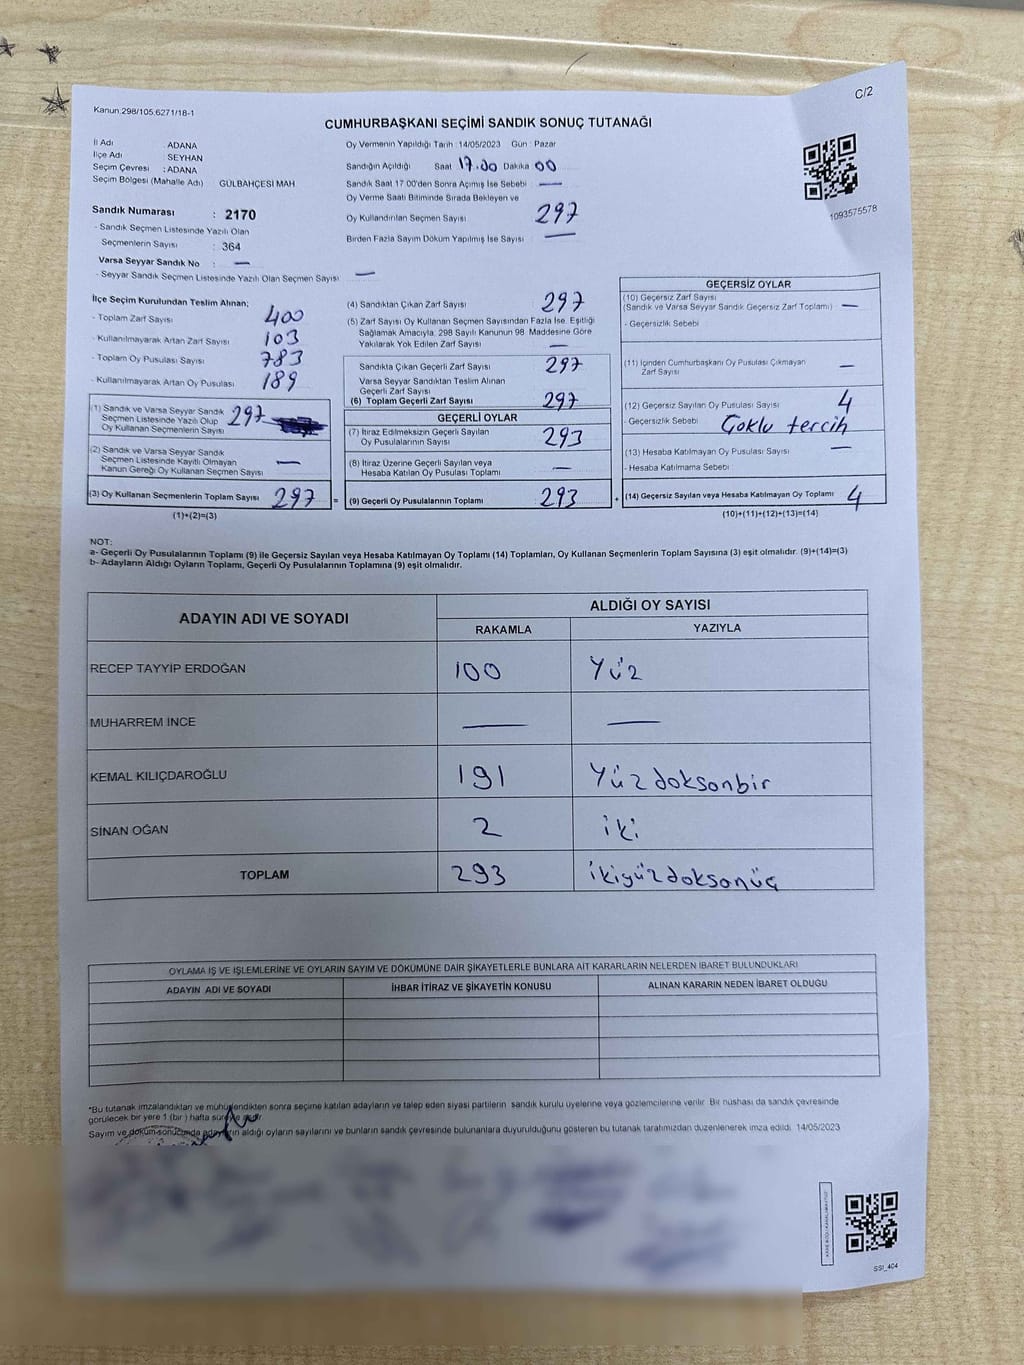 C/2
Kanun 298/105,6271/18-1
CUMHURBAŞKANI SEÇİMİ SANDIK SONUÇ TUTANAĞI
İl Adı : ADANA
İlçe Adı : SEYHAN
Seçim Çevresi : ADANA
Seçim Bölgesi (Mahalle Adı) GÜLBAHÇESİ MAH
Sandık Numarası : 2170
- Sandık Seçmen Listesinde Yazılı Olan
Seçmenlerin Sayısı : 364
Varsa Seyyar Sandık No : —
- Seyyar Sandık Seçmen Listesinde Yazılı Olan Seçmen Sayısı —
Oy Vermenin Yapıldığı Tarih : 14/05/2023 Gün : Pazar
Sandığın Açıldığı Saat 17.00 Dakika 00
Sandık Saat 17 00'den Sonra Açımış İse Sebebi —
Oy Verme Saati Bitiminde Sırada Bekleyen ve
Oy Kullandırılan Seçmen Sayısı 297
Birden Fazla Sayım Döküm Yapılmış İse Sayısı —
1093575578
İlçe Seçim Kurulundan Teslim Alınan;
- Toplam Zarf Sayısı 400
- Kullanılmayarak Artan Zarf Sayısı 103
- Toplam Oy Pusulası Sayısı 783
- Kullanılmayarak Artan Oy Pusulası 189
(1) Sandık ve Varsa Seyyar Sandık
Seçmen Listesinde Yazılı Olup
Oy Kullanan Seçmenlerin Sayısı 297
(2) Sandık ve Varsa Seyyar Sandık
Seçmen Listesinde Kayıtlı Olmayan
Kanun Gereği Oy Kullanan Seçmen Sayısı —
(3) Oy Kullanan Seçmenlerin Toplam Sayısı 297 =
(1)+(2)=(3)
(4) Sandıktan Çıkan Zarf Sayısı 297
(5) Zarf Sayısı Oy Kullanan Seçmen Sayısından Fazla İse, Eşitliği
Sağlamak Amacıyla, 298 Sayılı Kanunun 98. Maddesine Göre
Yakılarak Yok Edilen Zarf Sayısı —
Sandıkta Çıkan Geçerli Zarf Sayısı 297
Varsa Seyyar Sandıktan Teslim Alınan
Geçerli Zarf Sayısı
(6) Toplam Geçerli Zarf Sayısı 297
GEÇERLİ OYLAR
(7) İtiraz Edilmeksizin Geçerli Sayılan
Oy Pusulalarının Sayısı 293
(8) İtiraz Üzerine Geçerli Sayılan veya
Hesaba Katılan Oy Pusulası Toplamı —
(9) Geçerli Oy Pusulalarının Toplamı 293 +
GEÇERSİZ OYLAR
(10) Geçersiz Zarf Sayısı
(Sandık ve Varsa Seyyar Sandık Geçersiz Zarf Toplamı) —
- Geçersizlik Sebebi
(11) İçinden Cumhurbaşkanı Oy Pusulası Çıkmayan
Zarf Sayısı —
(12) Geçersiz Sayılan Oy Pusulası Sayısı 4
- Geçersizlik Sebebi Çoklu tercih
(13) Hesaba Katılmayan Oy Pusulası Sayısı —
- Hesaba Katılmama Sebebi
(14) Geçersiz Sayılan veya Hesaba Katılmayan Oy Toplamı 4
(10)+(11)+(12)+(13)=(14)
NOT:
a- Geçerli Oy Pusulalarının Toplamı (9) ile Geçersiz Sayılan veya Hesaba Katılmayan Oy Toplamı (14) Toplamları, Oy Kullanan Seçmenlerin Toplam Sayısına (3) eşit olmalıdır. (9)+(14)=(3)
b- Adayların Aldığı Oyların Toplamı, Geçerli Oy Pusulalarının Toplamına (9) eşit olmalıdır.
ADAYIN ADI VE SOYADI ALDIĞI OY SAYISI
RAKAMLA YAZIYLA
RECEP TAYYİP ERDOĞAN 100 Yüz
MUHARREM İNCE — —
KEMAL KILIÇDAROĞLU 191 Yüz doksanbir
SİNAN OĞAN 2 iki
TOPLAM 293 ikiyüzdoksanüç
OYLAMA İŞ VE İŞLEMLERİNE VE OYLARIN SAYIM VE DÖKÜMÜNE DAİR ŞİKAYETLERLE BUNLARA AİT KARARLARIN NELERDEN İBARET BULUNDUKLARI
ADAYIN ADI VE SOYADI İHBAR İTİRAZ VE ŞİKAYETİN KONUSU ALINAN KARARIN NEDEN İBARET OLDUĞU
*Bu tutanak imzalandıktan ve mühürlendikten sonra seçime katılan adayların ve talep eden siyasi partilerin sandık kurulu üyelerine veya gözlemcilerine verilir. Bir nüshası da sandık çevresinde
görülecek bir yere 1 (bir ) hafta süreyle asılır.
Sayım ve döküm sonucunda adayların aldığı oyların sayılarını ve bunların sandık çevresinde bulunanlara duyurulduğunu gösteren bu tutanak taratımızdan düzenlenerek imza edildi. 14/05/2023
SSI_404